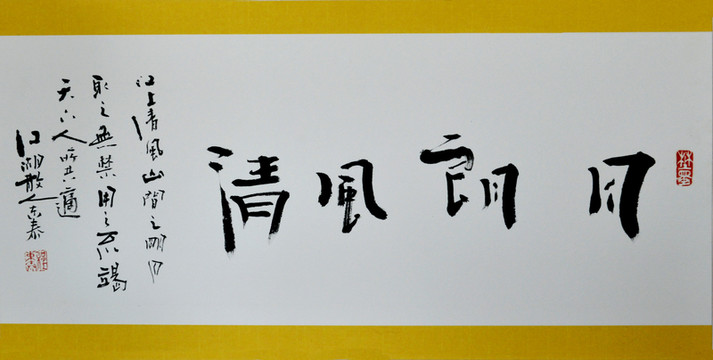 月朗風清
江上清風山間之明月
取之無禁用之不竭
天下人所共適
江湖散人东泰